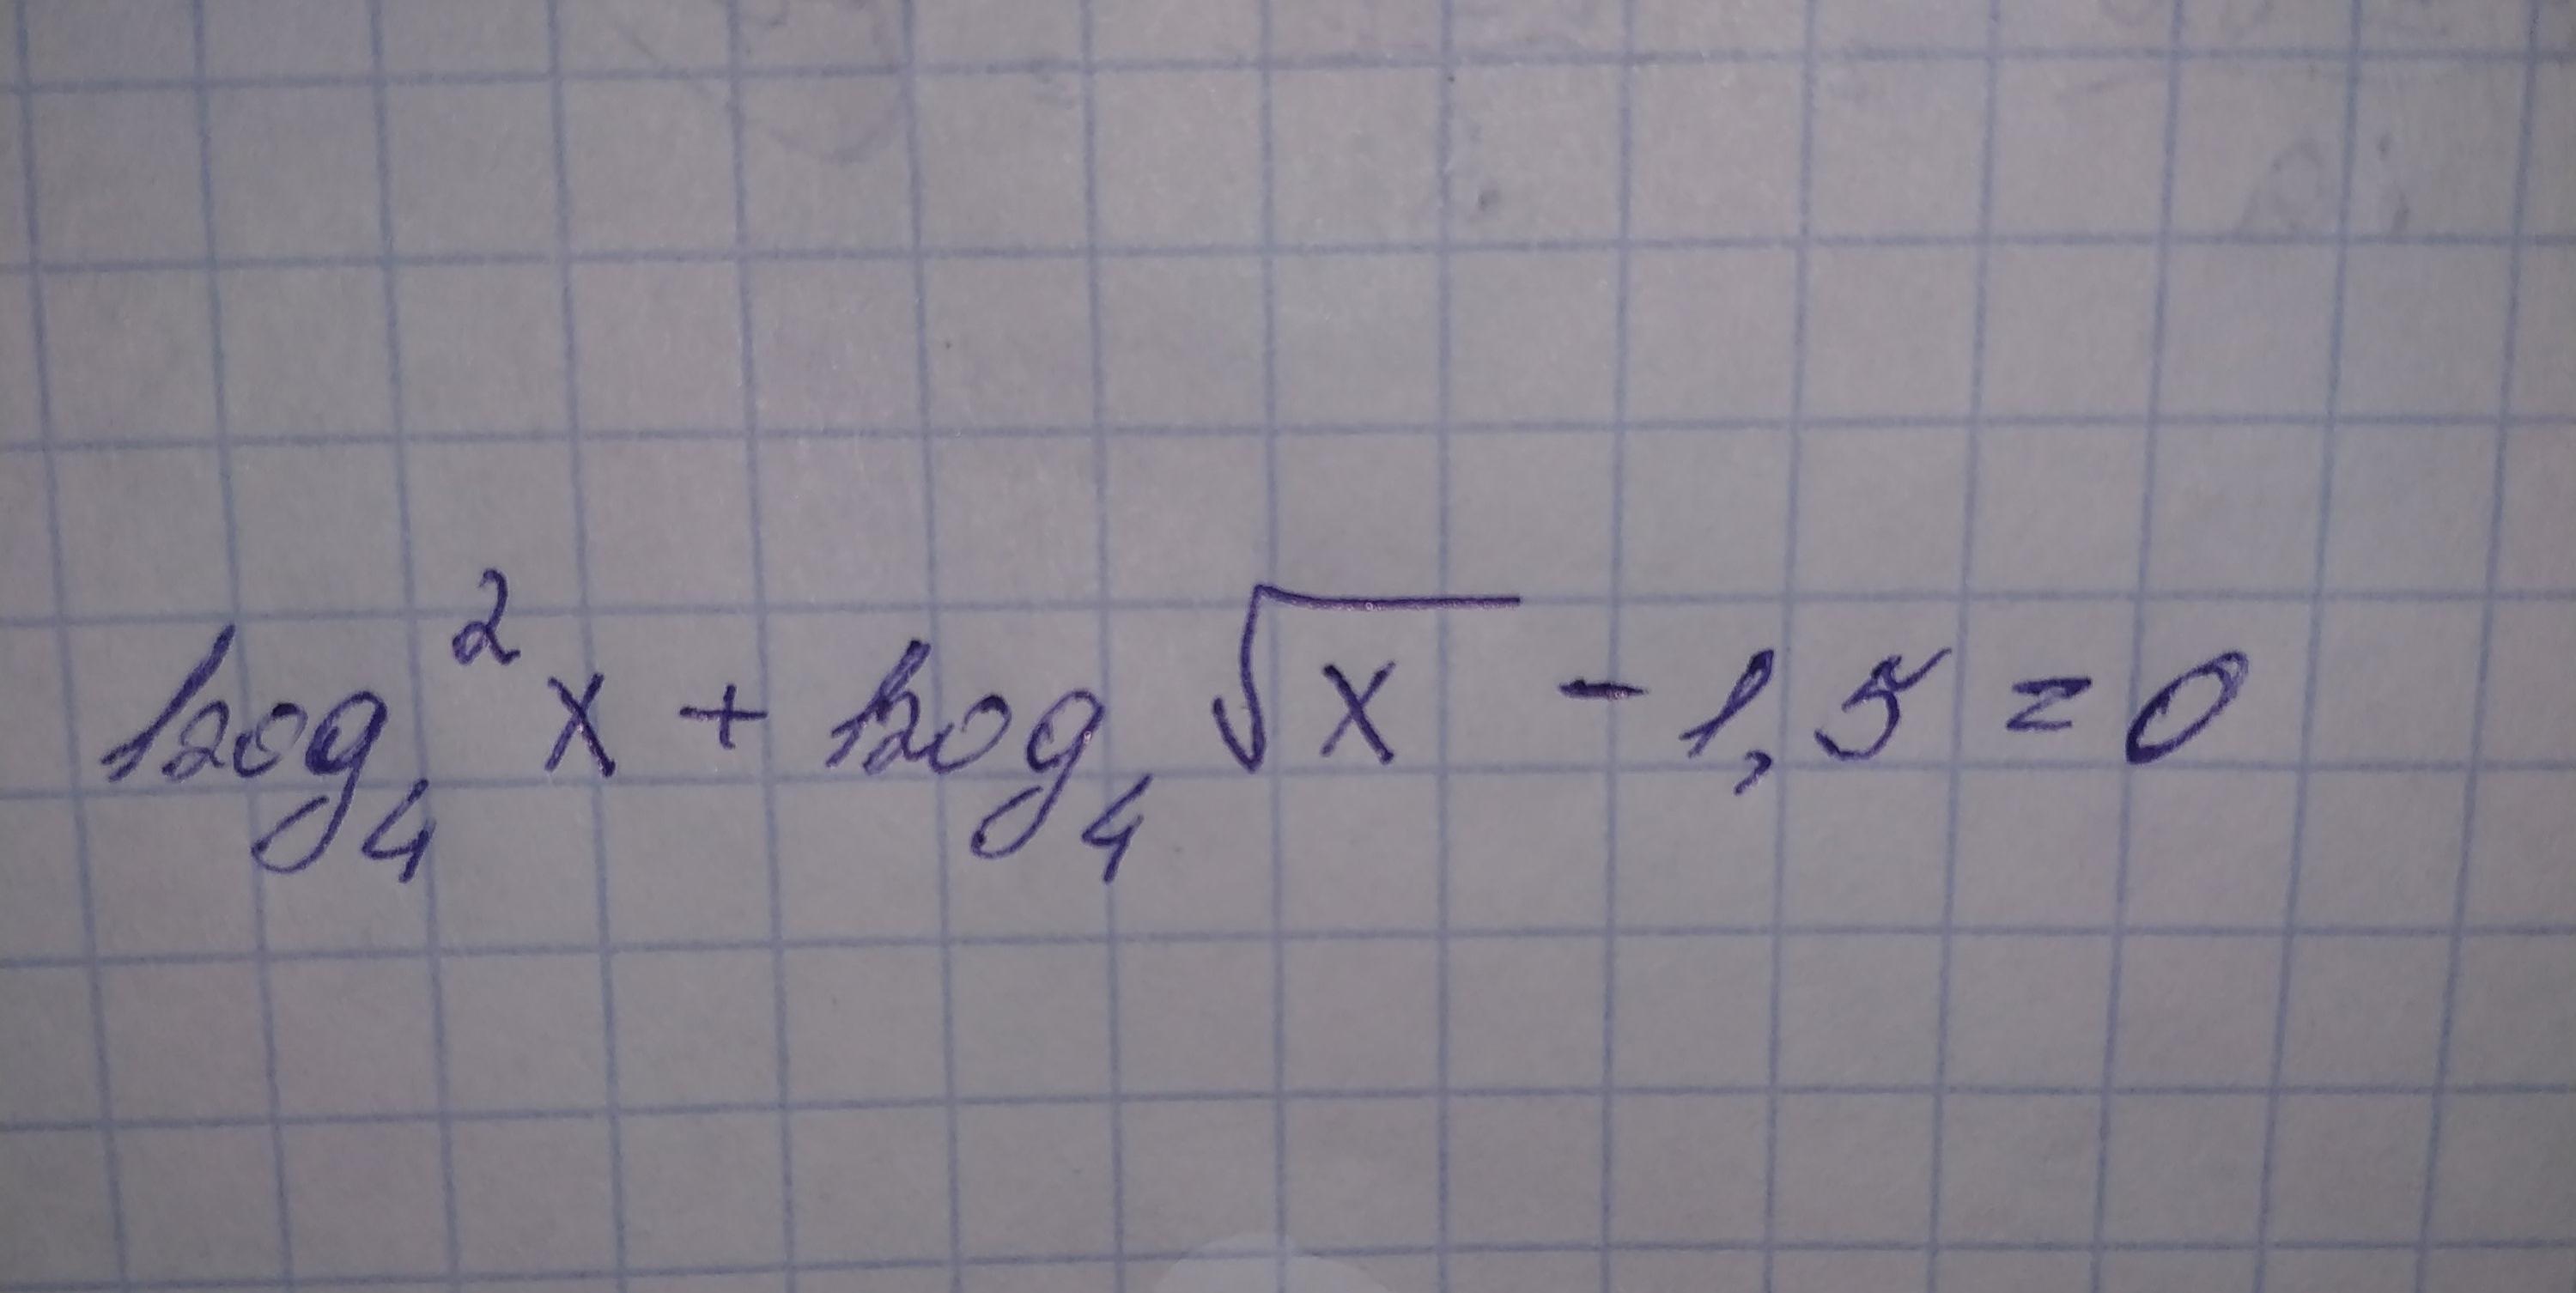 log₄²x + log₄√x - 1,5 = 0